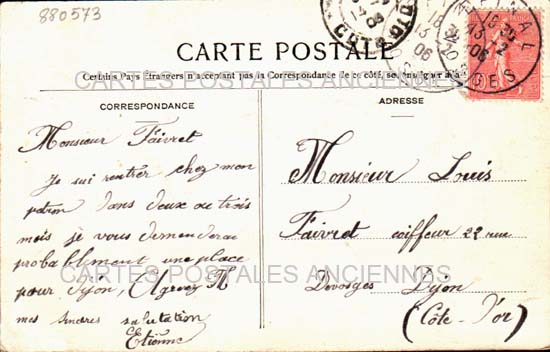 880573
CARTE POSTALE
Certains Pays étrangers n'acceptant pas la Correspondance de ce côté, se renseigner à la
CARTES POSTALES ANCIENNES
CORRESPONDANCE
Monsieur Faivret
Je sui rentrer chez mon
patron dans deux ou trois
mois je vous demenderai
probablement une place
pour Dijon, Agreez
mes sincères salutation
Etienne
ADRESSE
Monsieur Louis
Faivret coiffeur 22 rue
Devosges Dijon
(Côte-d'or)
CARTES POSTALES ANCIENNES
EPINAL
VOSGES
13
06